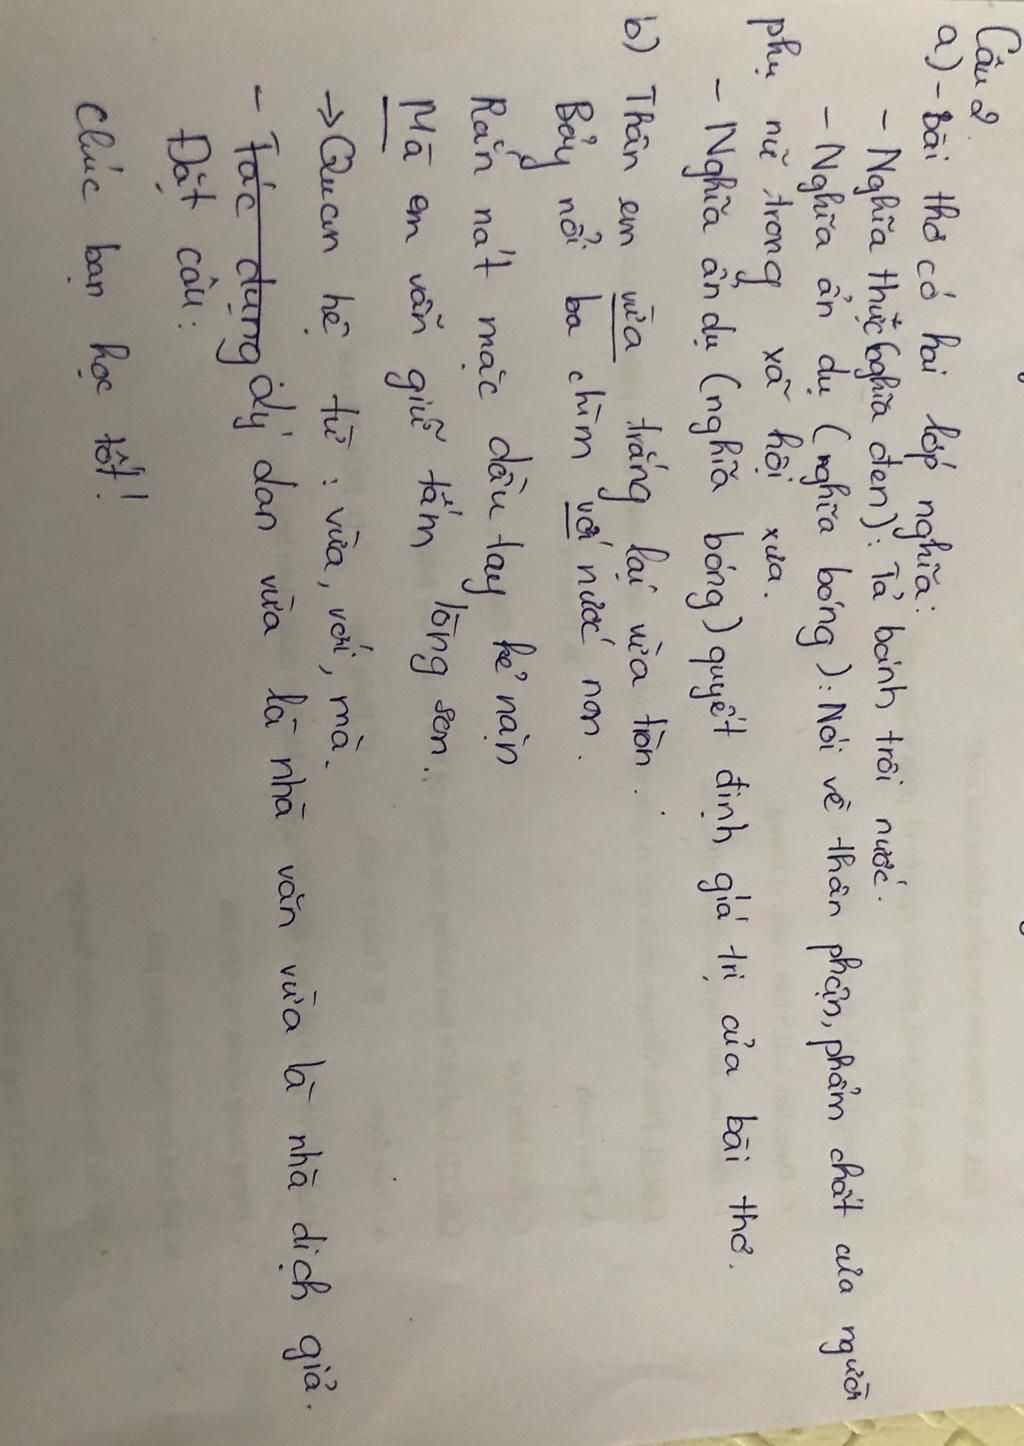 Câu 2.
a) - Bài thơ có hai lớp nghĩa:
- Nghĩa thực (nghĩa đen): Tả bánh trôi nước.
- Nghĩa ẩn dụ (nghĩa bóng): Nói về thân phận, phẩm chất của người
phụ nữ trong xã hội xưa.
- Nghĩa ẩn dụ (nghĩa bóng) quyết định giá trị của bài thơ.
b) Thân em vừa trắng lại vừa tròn.
Bảy nổi ba chìm với nước non.
Rắn nát mặc dầu tay kẻ nặn
Mà em vẫn giữ tấm lòng son.
→ Quan hệ từ: vừa, với, mà.
- Tác dụng dy' dan vừa là nhà văn vừa là nhà dịch giả.
Đặt câu:
Chúc bạn học tốt!